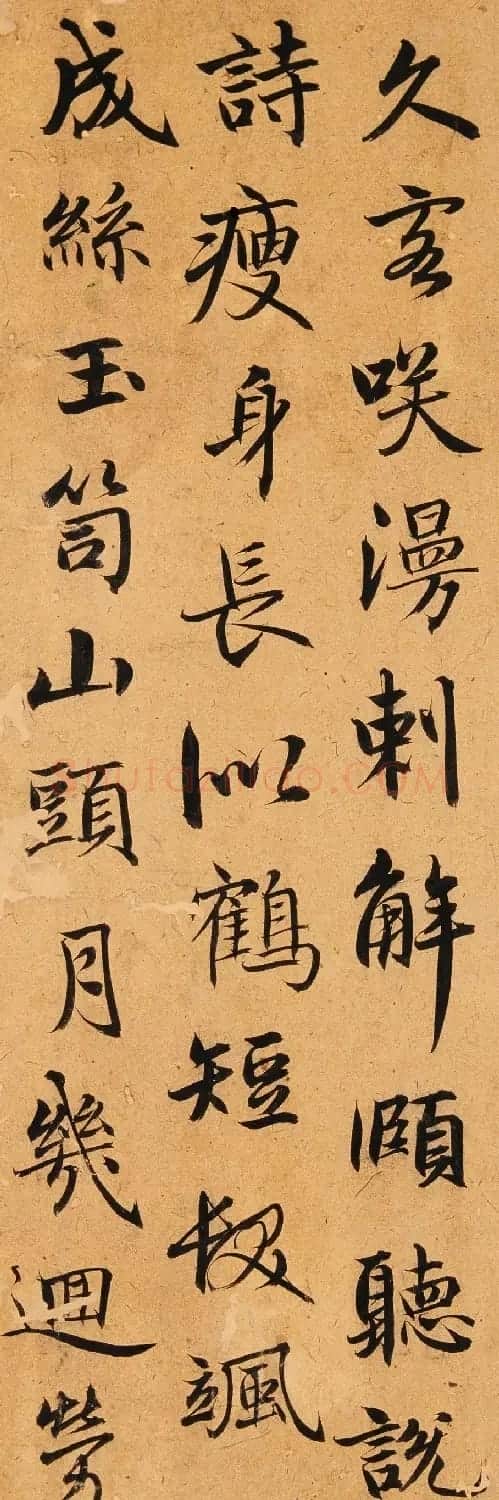 久客咲漫刺觧頤聽説
詩瘦身長似鶴短髮颯
成絲玉笥山頭月幾迴勞